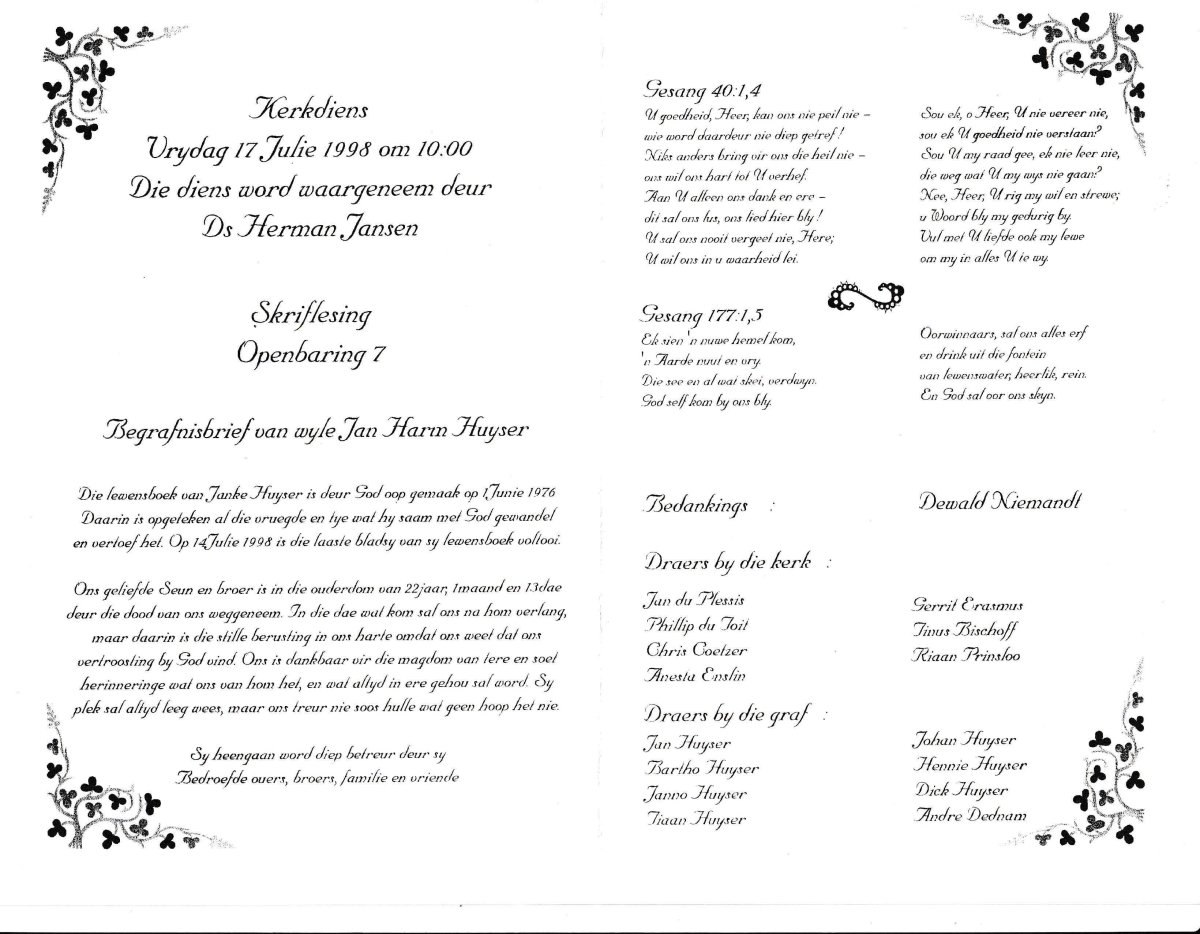 Kerkdiens
Vrydag 17 Julie 1998 om 10:00
Die diens word waargeneem deur
Ds Herman Jansen
Skriflesing
Openbaring 7
Begrafnisbrief van wyle Jan Harm Huyser
Die lewensboek van Janke Huyser is deur God oop gemaak op 1Junie 1976
Daarin is opgeteken al die vruegde en tye wat hy saam met God gewandel
en vertoef het. Op 14Julie 1998 is die laaste bladsy van sy lewensboek voltooi.
Ons geliefde Seun en broer is in die ouderdom van 22jaar, 1maand en 13dae
deur die dood van ons weggeneem. In die dae wat kom sal ons na hom verlang,
maar daarin is die stille berusting in ons harte omdat ons weet dat ons
vertroosting by God vind. Ons is dankbaar vir die magdom van tere en soet
herinneringe wat ons van hom het, en wat altyd in ere gehou sal word. Sy
plek sal altyd leeg wees, maar ons treur nie soos hulle wat geen hoop het nie.
Sy heengaan word diep betreur deur sy
Bedroefde ouers, broers, familie en vriende
Gesang 40:1,4
U goedheid, Heer, kan ons nie peil nie –
wie word daardeur nie diep getref!
Niks anders bring vir ons die heil nie –
ons wil ons hart tot U verhef.
Aan U alleen ons dank en ere –
dit sal ons lus, ons lied hier bly!
U sal ons nooit vergeet nie, Here;
U wil ons in u waarheid lei.
Sou ek, o Heer, U nie vereer nie,
sou ek U goedheid nie verstaan?
Sou U my raad gee, ek nie leer nie,
die weg wat U my wys nie gaan?
Nee, Heer, U rig my wil en strewe;
u Woord bly my gedurig by.
Vul met U liefde ook my lewe
om my in alles U te wy.
Gesang 177:1,5
Ek sien 'n nuwe hemel kom,
'n Aarde nuut en vry.
Die see en al wat skei, verdwyn.
God self kom by ons bly.
Oorwinnaars, sal ons alles erf
en drink uit die fontein
van lewenswater, heerlik, rein.
En God sal oor ons skyn.
Bedankings : Dewald Niemandt
Draers by die kerk :
Jan du Plessis
Phillip du Toit
Chris Coetzer
Anesta Enslin
Gerrit Erasmus
Tinus Bischoff
Riaan Prinsloo
Draers by die graf :
Jan Huyser
Bartho Huyser
Janno Huyser
Tiaan Huyser
Johan Huyser
Hennie Huyser
Dick Huyser
Andre Dednam